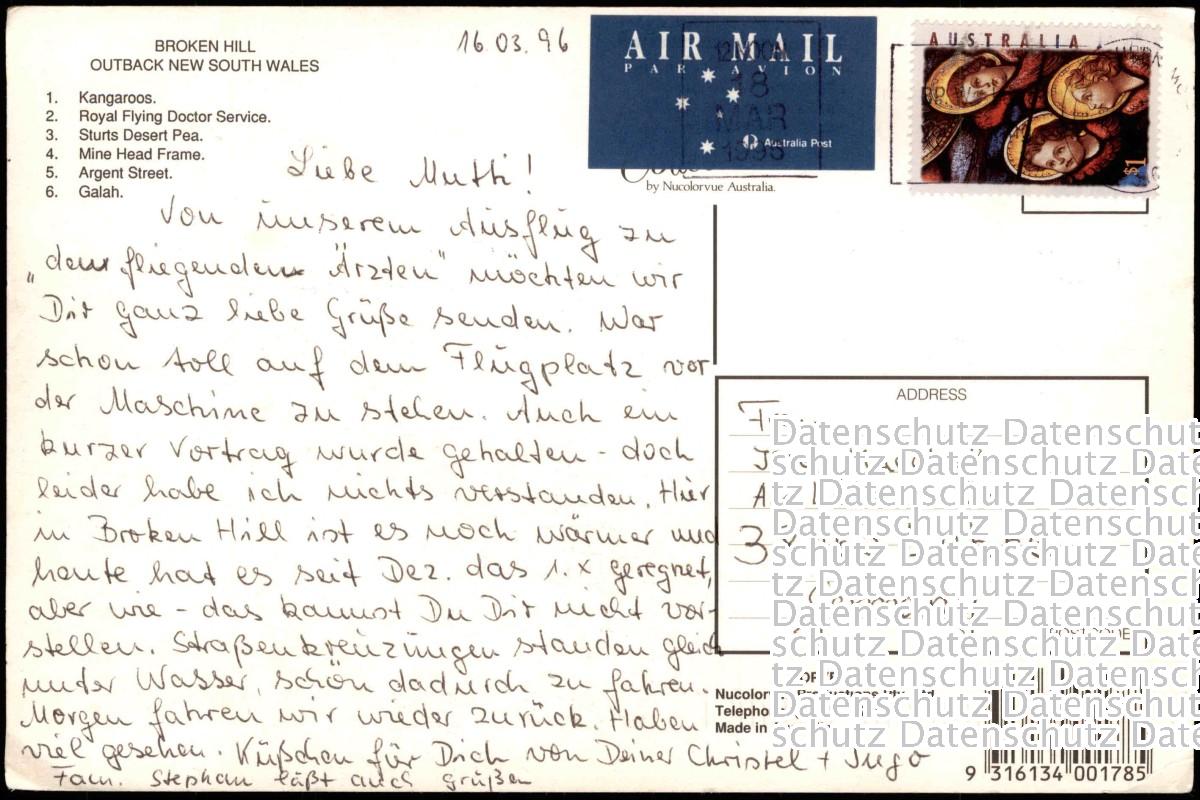 BROKEN HILL
OUTBACK NEW SOUTH WALES
1. Kangaroos.
2. Royal Flying Doctor Service.
3. Sturts Desert Pea.
4. Mine Head Frame.
5. Argent Street.
6. Galah.
16.03.96
AIR MAIL
PAR AVION
Australia Post
18
MAR
1996
AUSTRALIA
$1
by Nucolorvue Australia.
Liebe Mutti!
Von unserem Ausflug zu
„den fliegenden Ärzten" möchten wir
Dir ganz liebe Grüße senden. War
schon toll auf dem Flugplatz vor
der Maschine zu stehen. Auch ein
kurzer Vortrag wurde gehalten - doch
leider habe ich nichts verstanden. Hier
in Broken Hill ist es noch wärmer und
heute hat es seit Dez. das 1. x geregnet,
aber wie - das kannst Du Dir nicht vor-
stellen. Straßenkreuzungen standen gleich
unter Wasser, schön dadurch zu fahren.
Morgen fahren wir wieder zurück. Haben
viel gesehen. Küßchen für Dich von Deiner Christel + Ingo
Fam. Stephan läßt auch grüßen
ADDRESS
3
Germany
POSTCODE
Datenschutz Datenschut
schutz Datenschutz Dat
tz Datenschutz Datensc
Datenschutz Datenschut
schutz Datenschutz Dat
tz Datenschutz Datensc
Datenschutz Datenschut
schutz Datenschutz Dat
tz Datenschutz Datensc
Datenschutz Datenschut
schutz Datenschutz Dat
Nucolor
Telepho
Made in
9 316134 001785